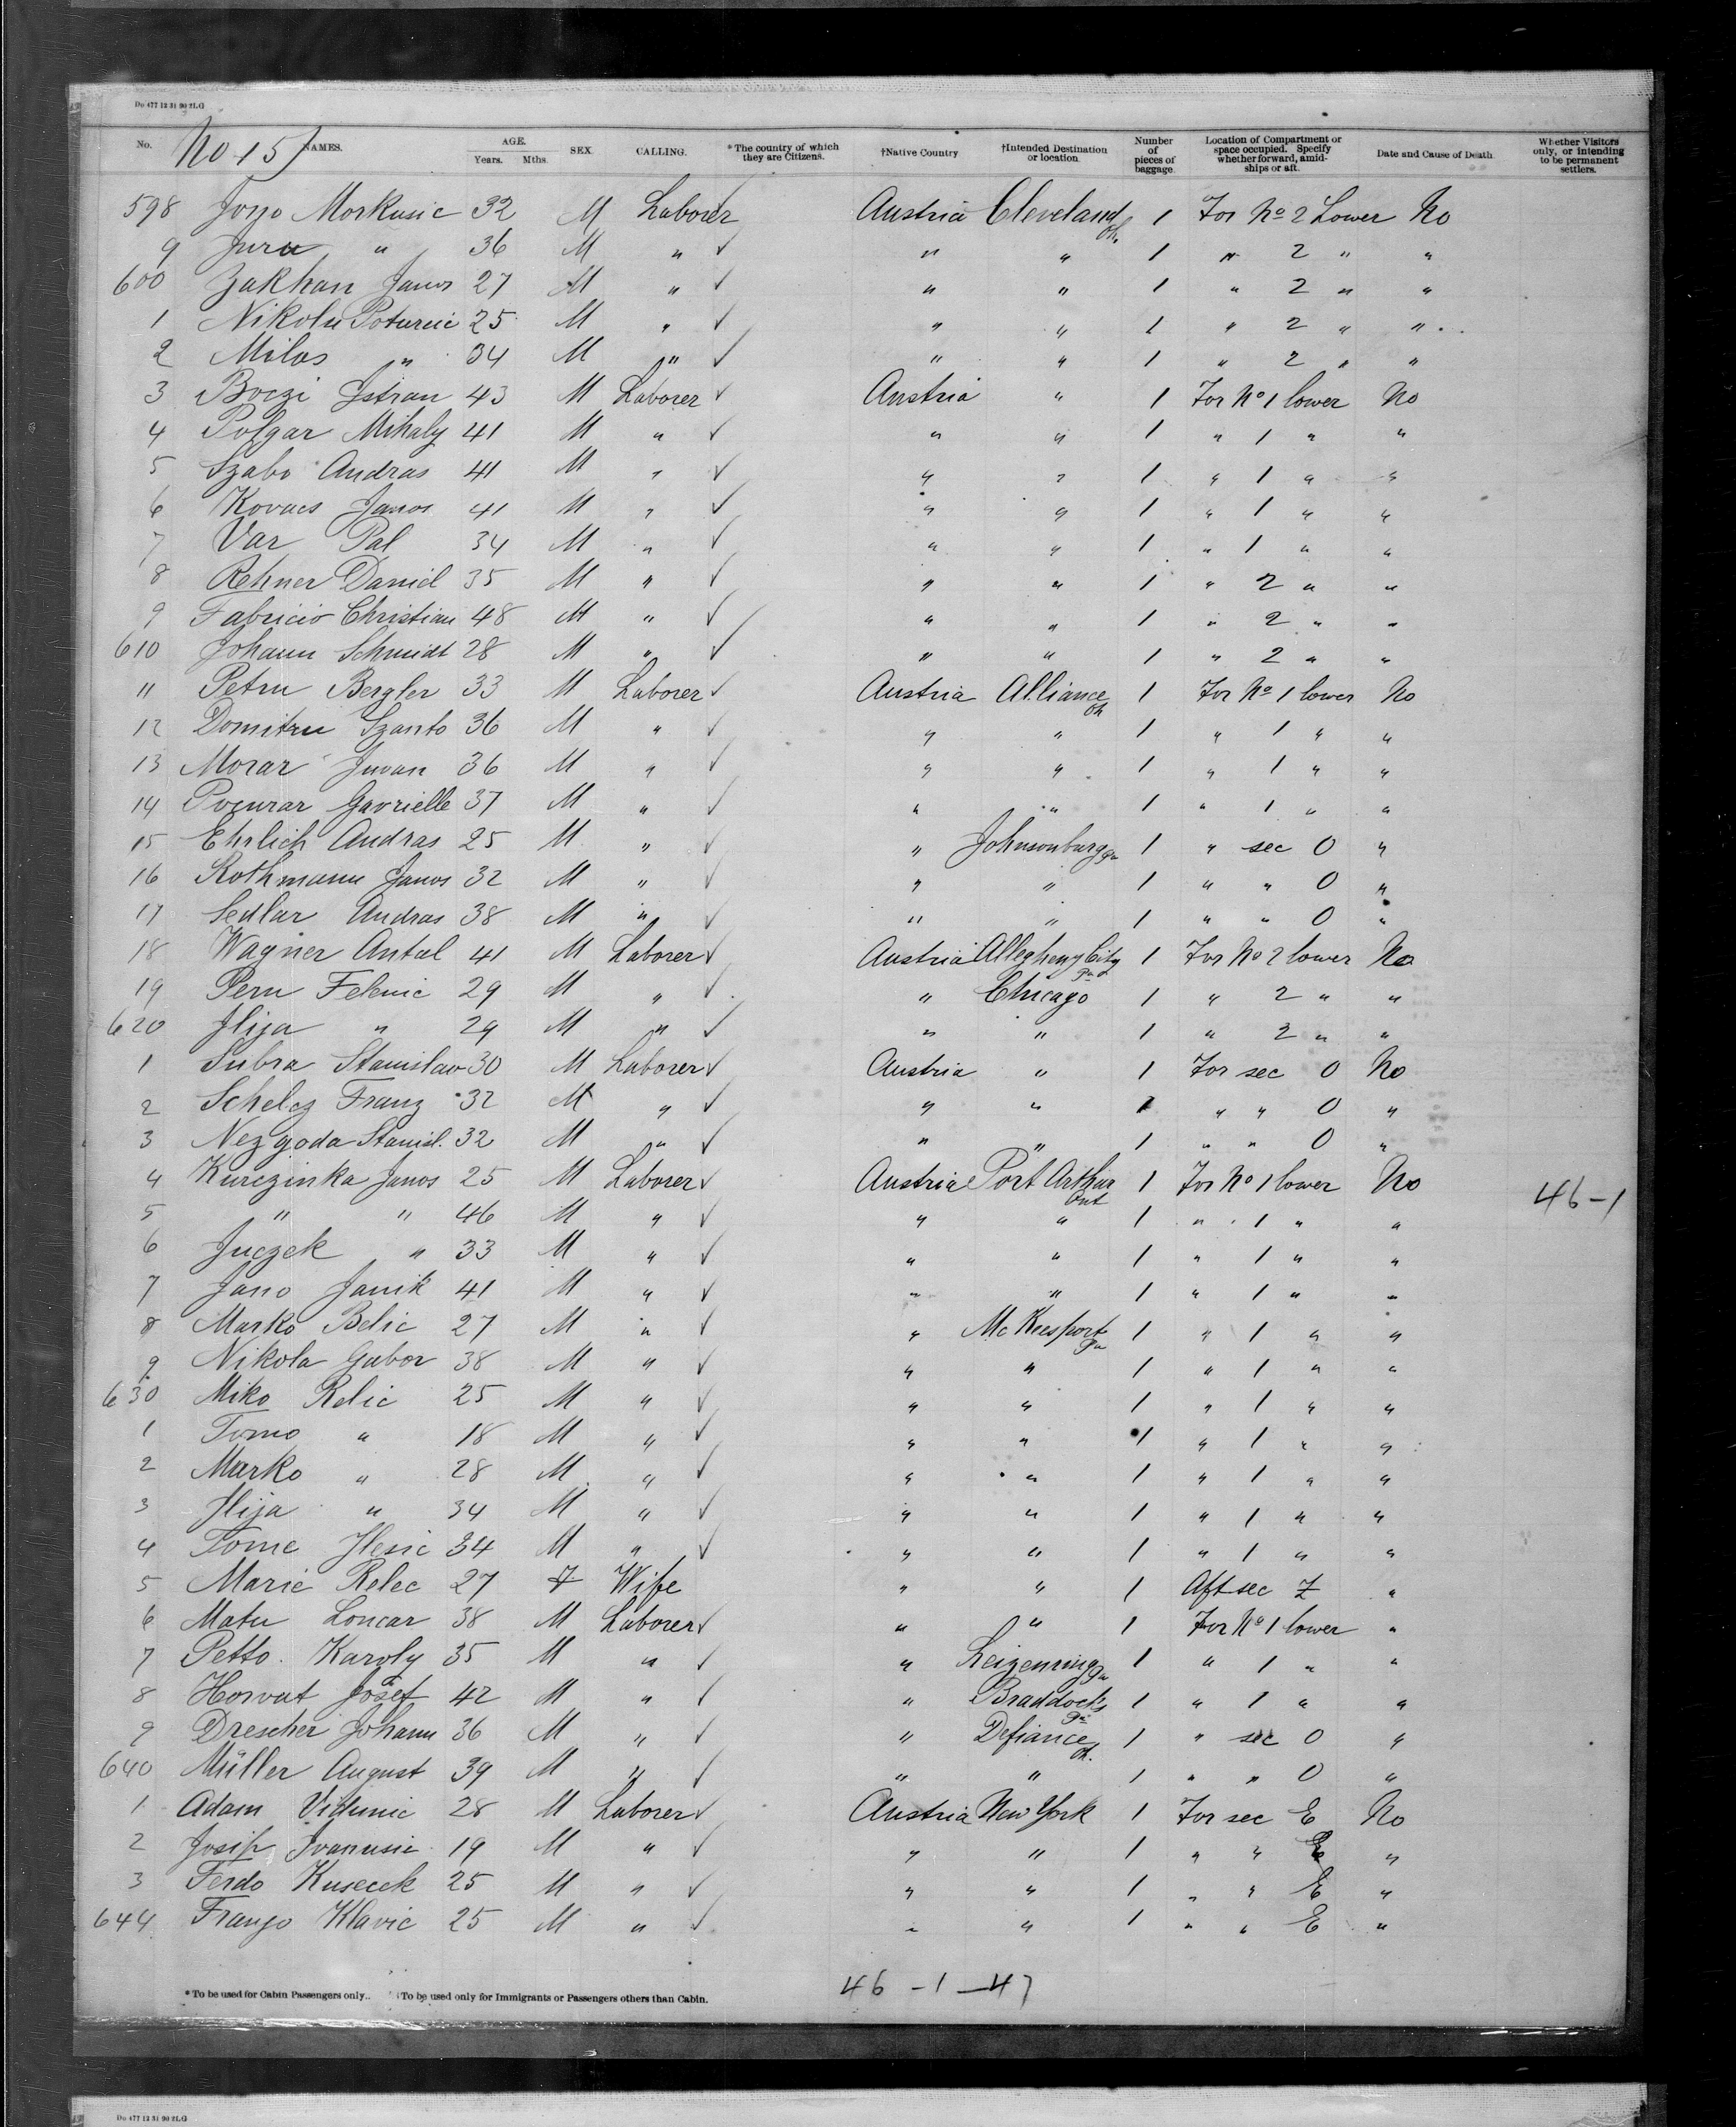 Do 477 12 31 90 2LG
No 15
No. NAMES. AGE. Years. Mths. SEX. CALLING. *The country of which they are Citizens. †Native Country †Intended Destination or location Number of pieces of baggage. Location of Compartment or space occupied. Specify whether forward, amidships or aft. Date and Cause of Death. Whether Visitors only, or intending to be permanent settlers.
598 Jozo Morkusic 32 M Laborer ✓ Austria Cleveland Oh. 1 For No 2 Lower No
9 Jura " 36 M " ✓ " " 1 " 2 " "
600 Zakhan Janos 27 M " ✓ " " 1 " 2 " "
1 Nikola Poturcic 25 M " ✓ " " 1 " 2 " "
2 Milos " 34 M " ✓ " " 1 " 2 " "
3 Boczi Istvan 43 M Laborer ✓ Austria " 1 For No 1 lower No
4 Polgar Mihaly 41 M " ✓ " " 1 " 1 " "
5 Szabo Andras 41 M " ✓ " " 1 " 1 " "
6 Kovacs Janos 41 M " ✓ " " 1 " 1 " "
7 Var Pal 34 M " ✓ " " 1 " 1 " "
8 Rehner Daniel 35 M " ✓ " " 1 " 2 " "
9 Fabricio Christian 48 M " ✓ " " 1 " 2 " "
610 Johann Schmidt 28 M " ✓ " " 1 " 2 " "
11 Petru Bergler 33 M Laborer ✓ Austria Alliance Oh 1 For No 1 lower No
12 Domitru Szanto 36 M " ✓ " " 1 " 1 " "
13 Morar Juvan 36 M " ✓ " " 1 " 1 " "
14 Pocurar Gavrielle 37 M " ✓ " " 1 " 1 " "
15 Ehrlich Andras 25 M " ✓ " Johnsonburg Pa 1 " sec O "
16 Rothmann Janos 32 M " ✓ " " 1 " " O "
17 Sedlar Andras 38 M " ✓ " " 1 " " O "
18 Wagner Antal 41 M Laborer ✓ Austria Allegheny City Pa 1 For No 2 lower No
19 Peru Felenic 29 M " ✓ " Chicago 1 " 2 " "
620 Ilija " 29 M " ✓ " " 1 " 2 " "
1 Subra Stanislaw 30 M Laborer ✓ Austria " 1 For sec O No
2 Schelcz Franz 32 M " ✓ " " 1 " " O "
3 Nezgoda Stanisl. 32 M " ✓ " " 1 " " O "
4 Kurczinka Janos 25 M Laborer ✓ Austria Port Arthur Ont 1 For No 1 lower No 46-1
5 " " 46 M " ✓ " " 1 " 1 " "
6 Juczek " 33 M " ✓ " " 1 " 1 " "
7 Jano Janik 41 M " ✓ " " 1 " 1 " "
8 Marko Belic 27 M " ✓ " Mc Keesport Pa 1 " 1 " "
9 Nikola Gabor 38 M " ✓ " " 1 " 1 " "
630 Miko Relic 25 M " ✓ " " 1 " 1 " "
1 Tomo " 18 M " ✓ " " 1 " 1 " "
2 Marko " 28 M " ✓ " " 1 " 1 " "
3 Ilija " 34 M " ✓ " " 1 " 1 " "
4 Tome Ilesic 34 M " ✓ " " 1 " 1 " "
5 Marie Relec 27 F Wife " " 1 Aft sec Z "
6 Matu Loncar 38 M Laborer ✓ " " 1 For No 1 lower "
7 Petto. Karoly 35 M " ✓ " Leizenring Pa 1 " 1 " "
8 Horvat Josef 42 M " ✓ " Braddocks Pa 1 " 1 " "
9 Drescher Johann 36 M " ✓ " Defiance Oh. 1 " sec O "
640 Müller August 39 M " ✓ " " 1 " " O "
1 Adam Vidunic 28 M Laborer ✓ Austria New York 1 For sec E No
2 Josip Ivanusic 19 M " ✓ " " 1 " " E "
3 Ferdo Kusecek 25 M " ✓ " " 1 " " E "
644 Franjo Klavic 25 M " ✓ " " 1 " " E "
46 - 1 - 47
*To be used for Cabin Passengers only. †To be used only for Immigrants or Passengers others than Cabin.
Do 477 12 31 90 2LG